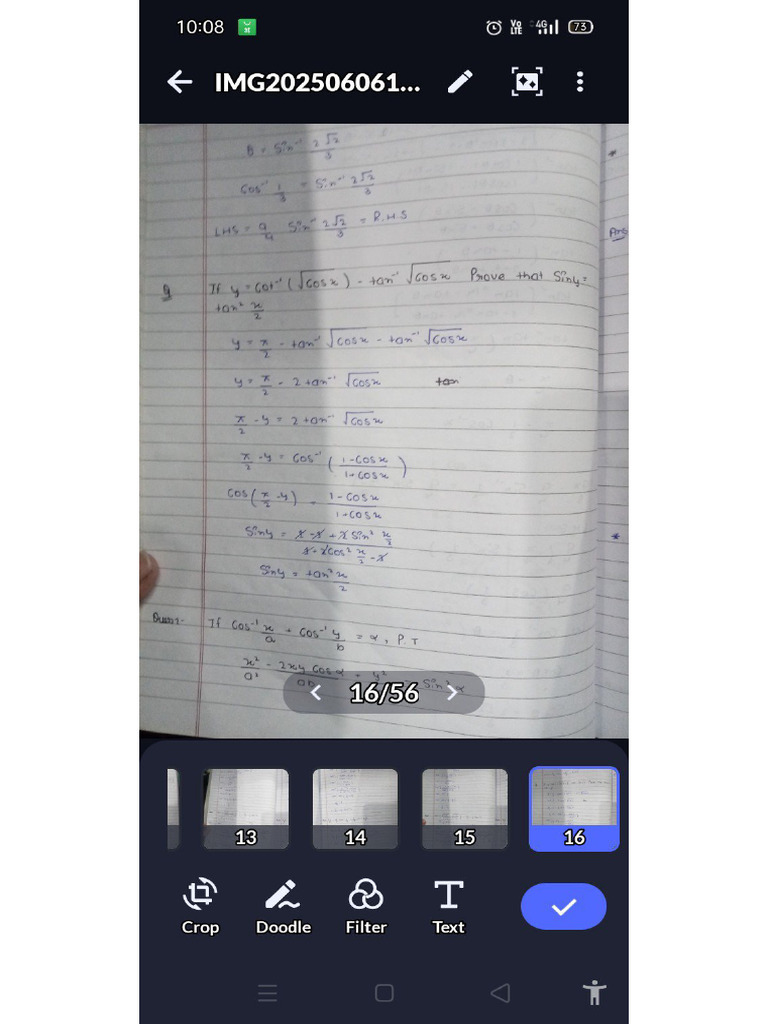 10:08 Vo LTE 4G 73
IMG202506061...
θ = Sin⁻¹ 2√2/3
Cos⁻¹ 1/3 = Sin⁻¹ 2√2/3
LHS = 9/4 Sin⁻¹ 2√2/3 = R.H.S
Q If y = Cot⁻¹ (√cosx) - tan⁻¹ √cosx Prove that Siny =
tan² x/2
y = π/2 - tan⁻¹ √cosx - tan⁻¹ √cosx
y = π/2 - 2 tan⁻¹ √cosx tan
π/2 - y = 2 tan⁻¹ √cosx
π/2 - y = Cos⁻¹ (1-cosx/1+cosx)
Cos(π/2 - y) = 1-cosx/1+cosx
Siny = 1-1+2 Sin² x/2 / 1-2cos² x/2 -1
Siny = tan² x/2
If Cos⁻¹ x/a + Cos⁻¹ y/b = α, P.T
x²/a² - 2xy Cosα/ab + y² Sin² α
16/56
13 14 15 16
Crop Doodle Filter Text